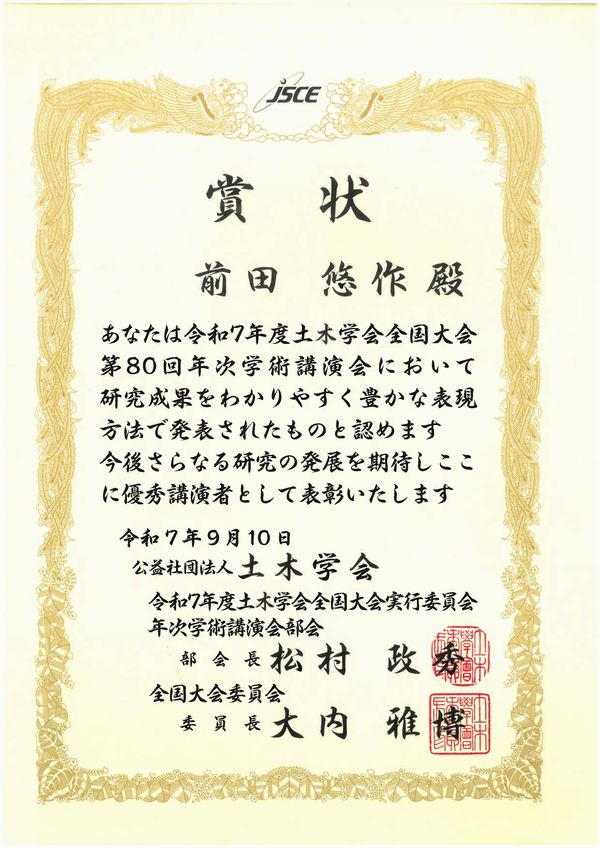 JSCE
賞状
前田 悠作 殿
あなたは令和7年度土木学会全国大会
第80回年次学術講演会において
研究成果をわかりやすく豊かな表現
方法で発表されたものと認めます
今後さらなる研究の発展を期待しここ
に優秀講演者として表彰いたします
令和7年9月10日
公益社団法人 土木学会
令和7年度土木学会全国大会実行委員会
年次学術講演会部会
部会長 松村 政秀
全国大会委員会
委員長 大内 雅博